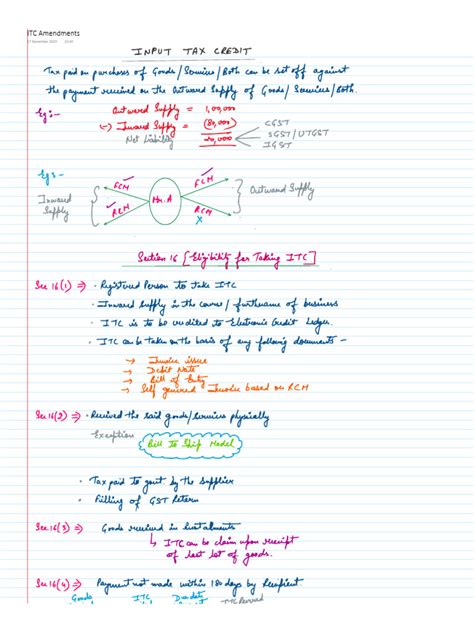 ITC Amendments
INPUT TAX CREDIT
Tax paid on purchases of Goods/Services/Both can be set off against
the payment received on the Outward Supply of Goods/Services/Both.
Eg:-
Outward Supply = 1,00,000
(-) Inward Supply = (80,000)
Net Liability 20,000
CGST
SGST/UTGST
IGST
Eg:-
Inward Supply
FCM
RCM
Mr. A
FCM
RCM
X
Outward Supply
Section 16 [Eligibility for Taking ITC]
Sec 16(1) ⇒ • Registered Person to take ITC
• Inward Supply in the course/furtherance of business
• ITC is to be credited to Electronic Credit Ledger.
• ITC can be taken on the basis of any following documents -
→ Invoice issue
→ Debit Note
→ Bill of Entry
→ Self Invoice based on RCM
Sec 16(2) ⇒ • Received the said goods/services physically
Exception
Bill to Ship Model
• Tax paid to govt by the Supplier
• Filling of GST Return
Sec 16(3) ⇒ Goods received in Instalments
↳ ITC can be claim upon receipt
of last lot of goods.
Sec 16(4) ⇒ Payment not made within 180 days by Recipient
Goods ITC Due date